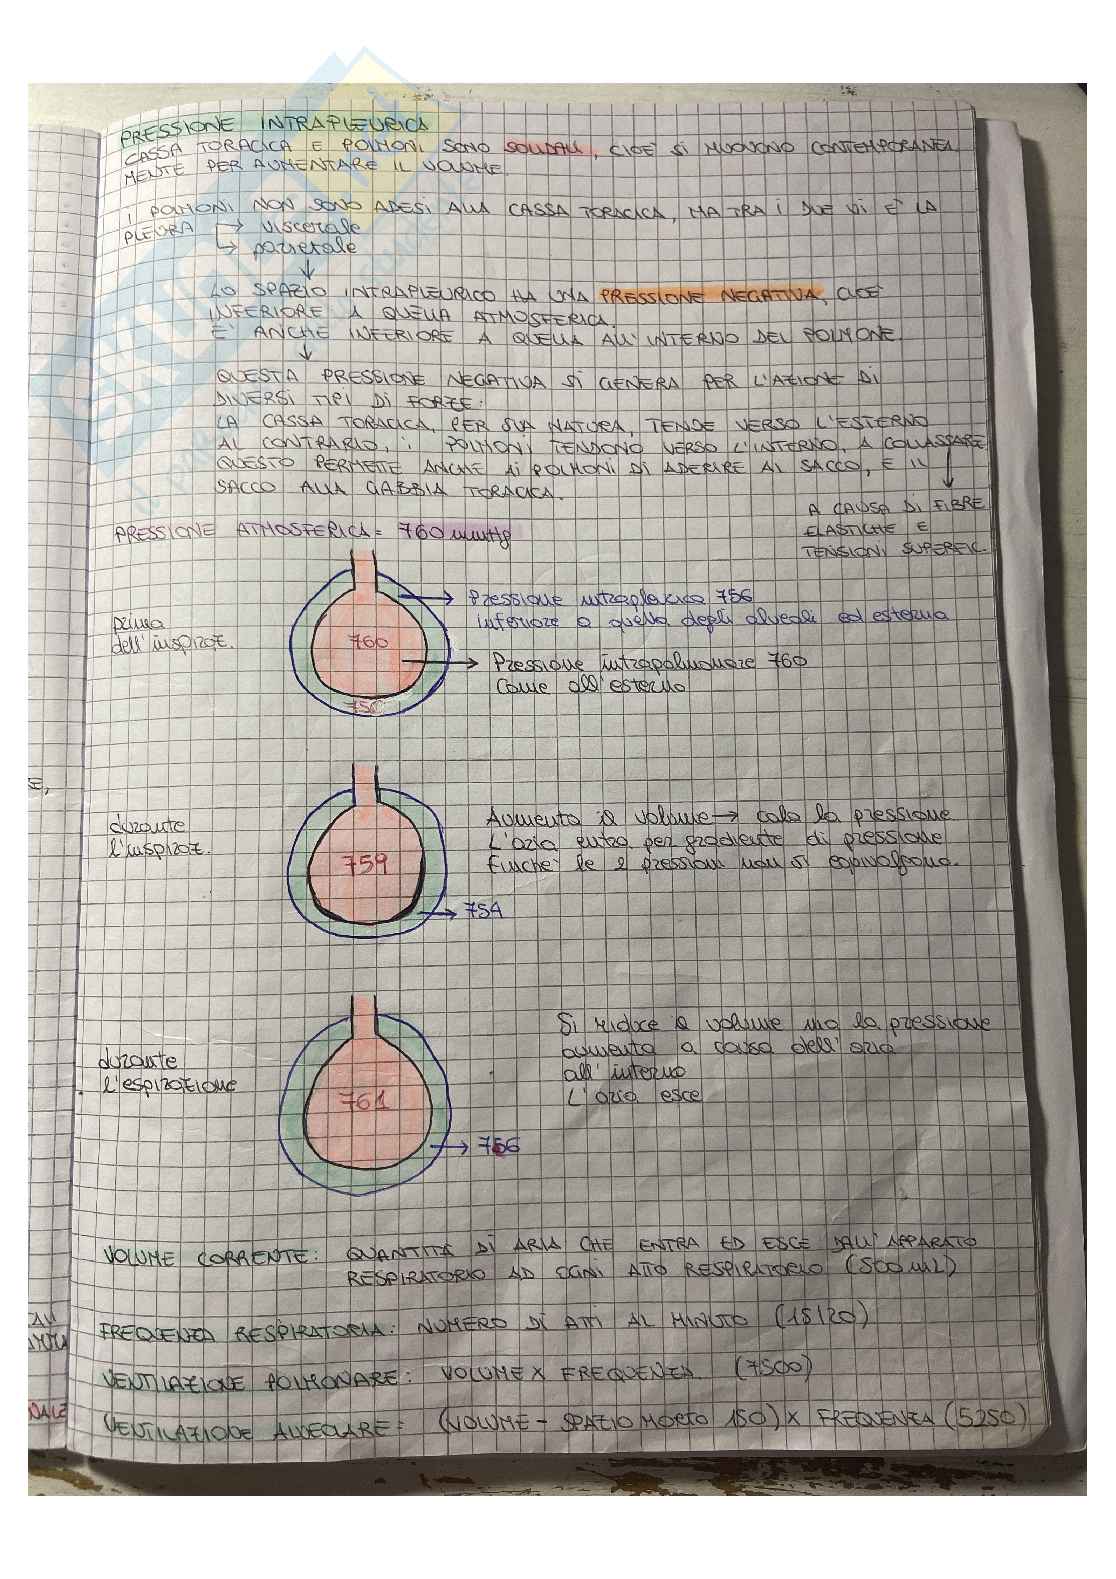 PRESSIONE INTRAPLEURICA
CASSA TORACICA E POLMONI SONO SOLIDALI, CIOÈ SI MUOVONO CONTEMPORANEA
MENTE PER AUMENTARE IL VOLUME.
I POLMONI NON SONO ADESI ALLA CASSA TORACICA, MA TRA I DUE VI È LA
PLEURA → viscerale
→ parietale
↓
LO SPAZIO INTRAPLEURICO HA UNA PRESSIONE NEGATIVA, CIOÈ
INFERIORE A QUELLA ATMOSFERICA.
E' ANCHE INFERIORE A QUELLA ALL'INTERNO DEL POLMONE.
↓
QUESTA PRESSIONE NEGATIVA SI GENERA PER L'AZIONE DI
DIVERSI TIPI DI FORZE:
LA CASSA TORACICA, PER SUA NATURA, TENDE VERSO L'ESTERNO
AL CONTRARIO, I POLMONI TENDONO VERSO L'INTERNO, A COLLASSARE
QUESTO PERMETTE ANCHE AI POLMONI DI ADERIRE AL SACCO, E IL
SACCO ALLA GABBIA TORACICA.
↓
A CAUSA DI FIBRE
ELASTICHE E
TENSIONI SUPERFIC.
PRESSIONE ATMOSFERICA = 760 mmHg
prima
dell'inspiraz.
760
756
→ Pressione intrapleurica 756
inferiore a quella degli alveoli ed esterna
→ Pressione intrapolmonare 760
Come all'esterno
E,
durante
l'inspiraz.
759
→ 754
Aumenta il volume → cala la pressione
L'aria entra per gradiente di pressione
finche' le 2 pressioni non si equivalgono.
durante
l'espirazione
761
→ 756
Si riduce il volume ma la pressione
aumenta a causa dell'aria
all'interno
L'aria esce
VOLUME CORRENTE: QUANTITÀ DI ARIA CHE ENTRA ED ESCE DALL'APPARATO
RESPIRATORIO AD OGNI ATTO RESPIRATORIO (500 mL)
FREQUENZA RESPIRATORIA: NUMERO DI ATTI AL MINUTO (15/20)
VENTILAZIONE POLMONARE: VOLUME X FREQUENZA. (7500)
VENTILAZIONE ALVEOLARE: (VOLUME - SPAZIO MORTO 150) X FREQUENZA (5250)